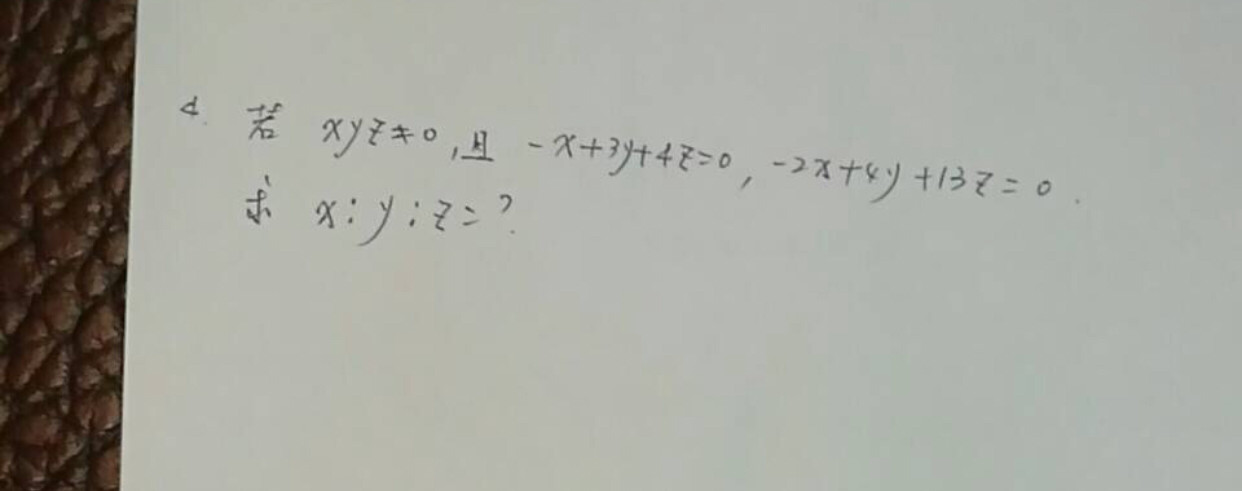 4. 若 xyz≠0,且 -x+3y+4z=0, -2x+4y+13z=0.
求 x:y:z=?